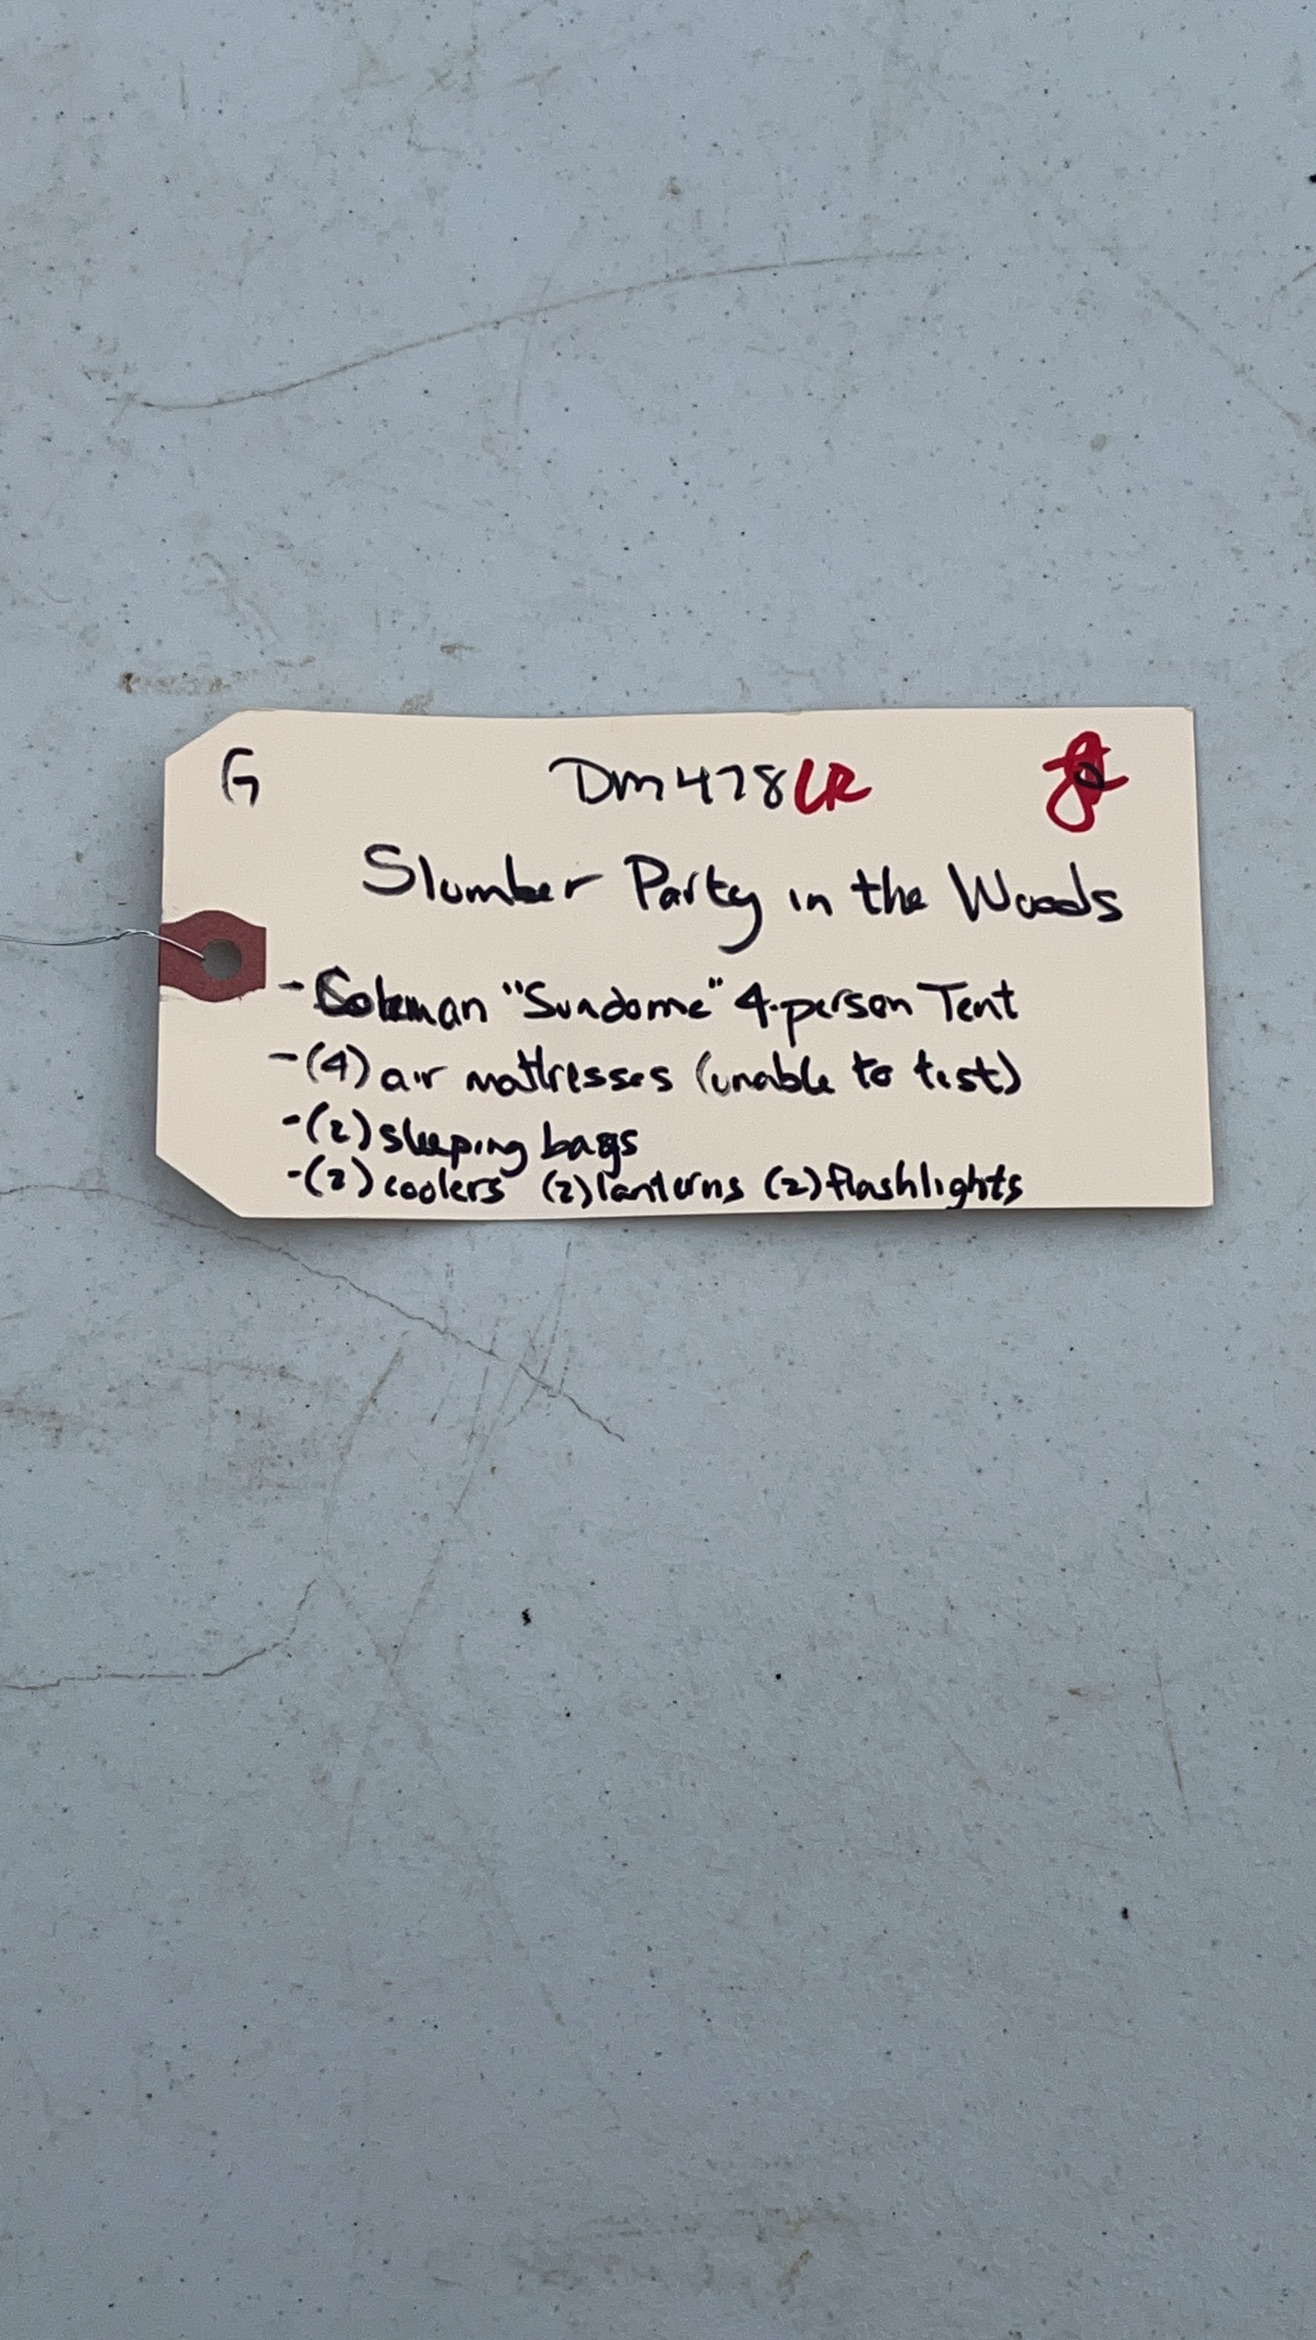 G Dm478LR
Slumber Party in the Woods
- Coleman "Sundome" 4-person Tent
- (4) air mattresses (unable to test)
- (2) sleeping bags
- (2) coolers (2) lanterns (2) flashlights